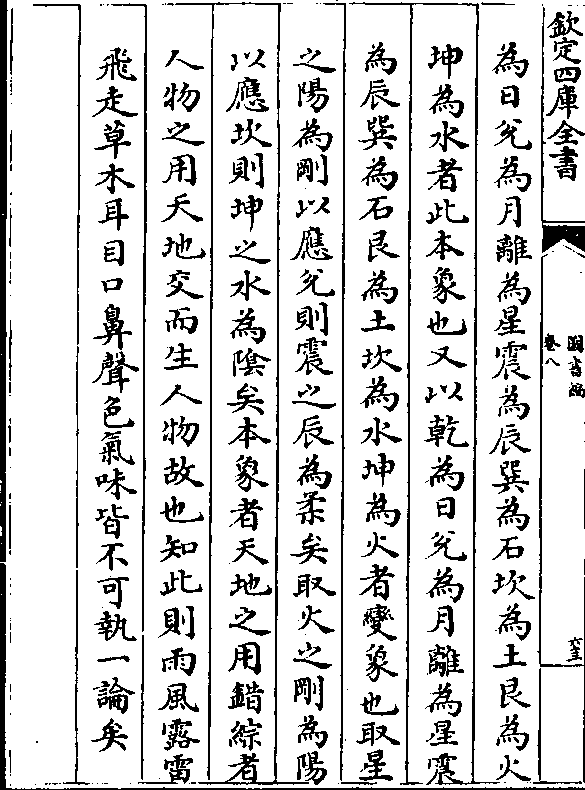 欽定四庫全書
圖書編
卷八
六三
為日兊為月離為星震為辰巽為石坎為土艮為火
坤為水者此本象也又以乾為日兊為月離為星震
為辰巽為石艮為土坎為水坤為火者變象也取星
之陽為剛以應兊則震之辰為柔矣取火之剛為陽
以應坎則坤之水為陰矣本象者天地之用錯綜者
人物之用天地交而生人物故也知此則雨風露雷
飛走草木耳目口鼻聲色氣味皆不可執一論矣